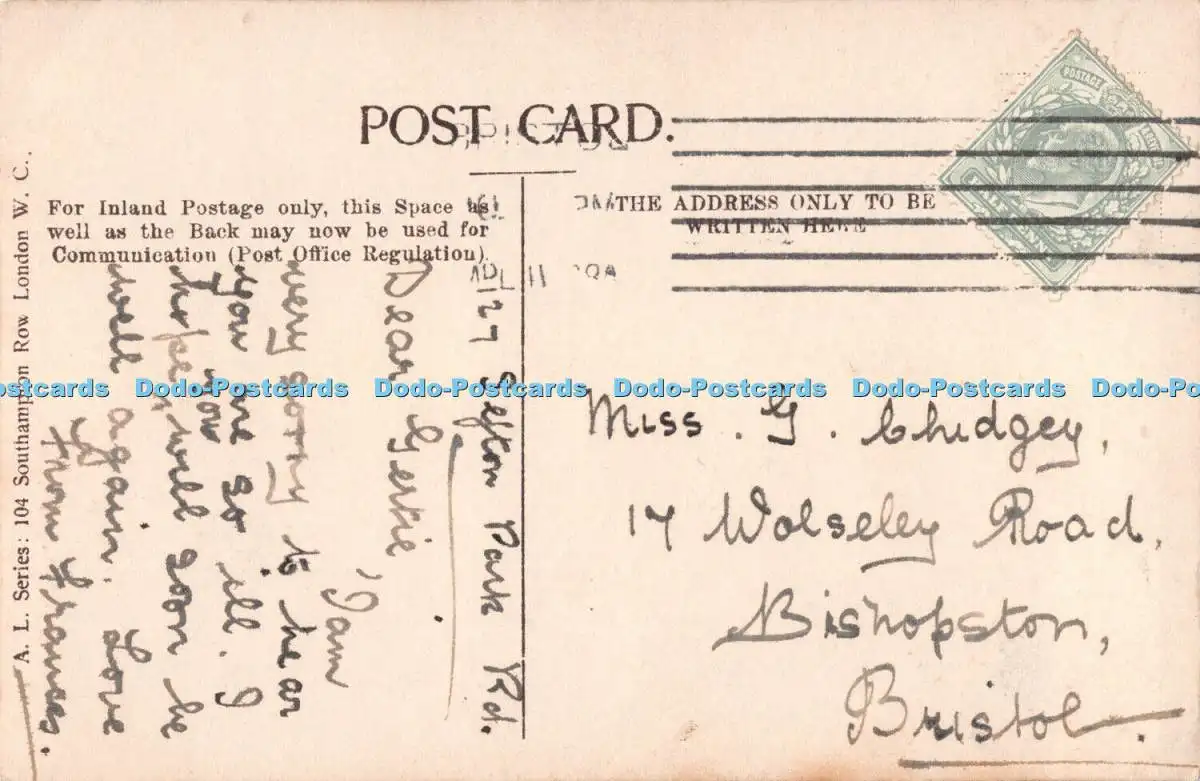 POST CARD.
For Inland Postage only, this Space as
well as the Back may now be used for
Communication (Post Office Regulation).
THE ADDRESS ONLY TO BE
WRITTEN HERE
A. L. Series: 104 Southampton Row London W. C.
127 Sefton Park Rd.
Dear Gertie,
I am
very sorry to hear
you are so ill. I
hope you will soon be
well again. Love
from Frances.
Miss. G. Chidgey,
17 Wolseley Road,
Bishopston,
Bristol.
POSTAGE
Dodo-Postcards Dodo-Postcards Dodo-Postcards Dodo-Postcards